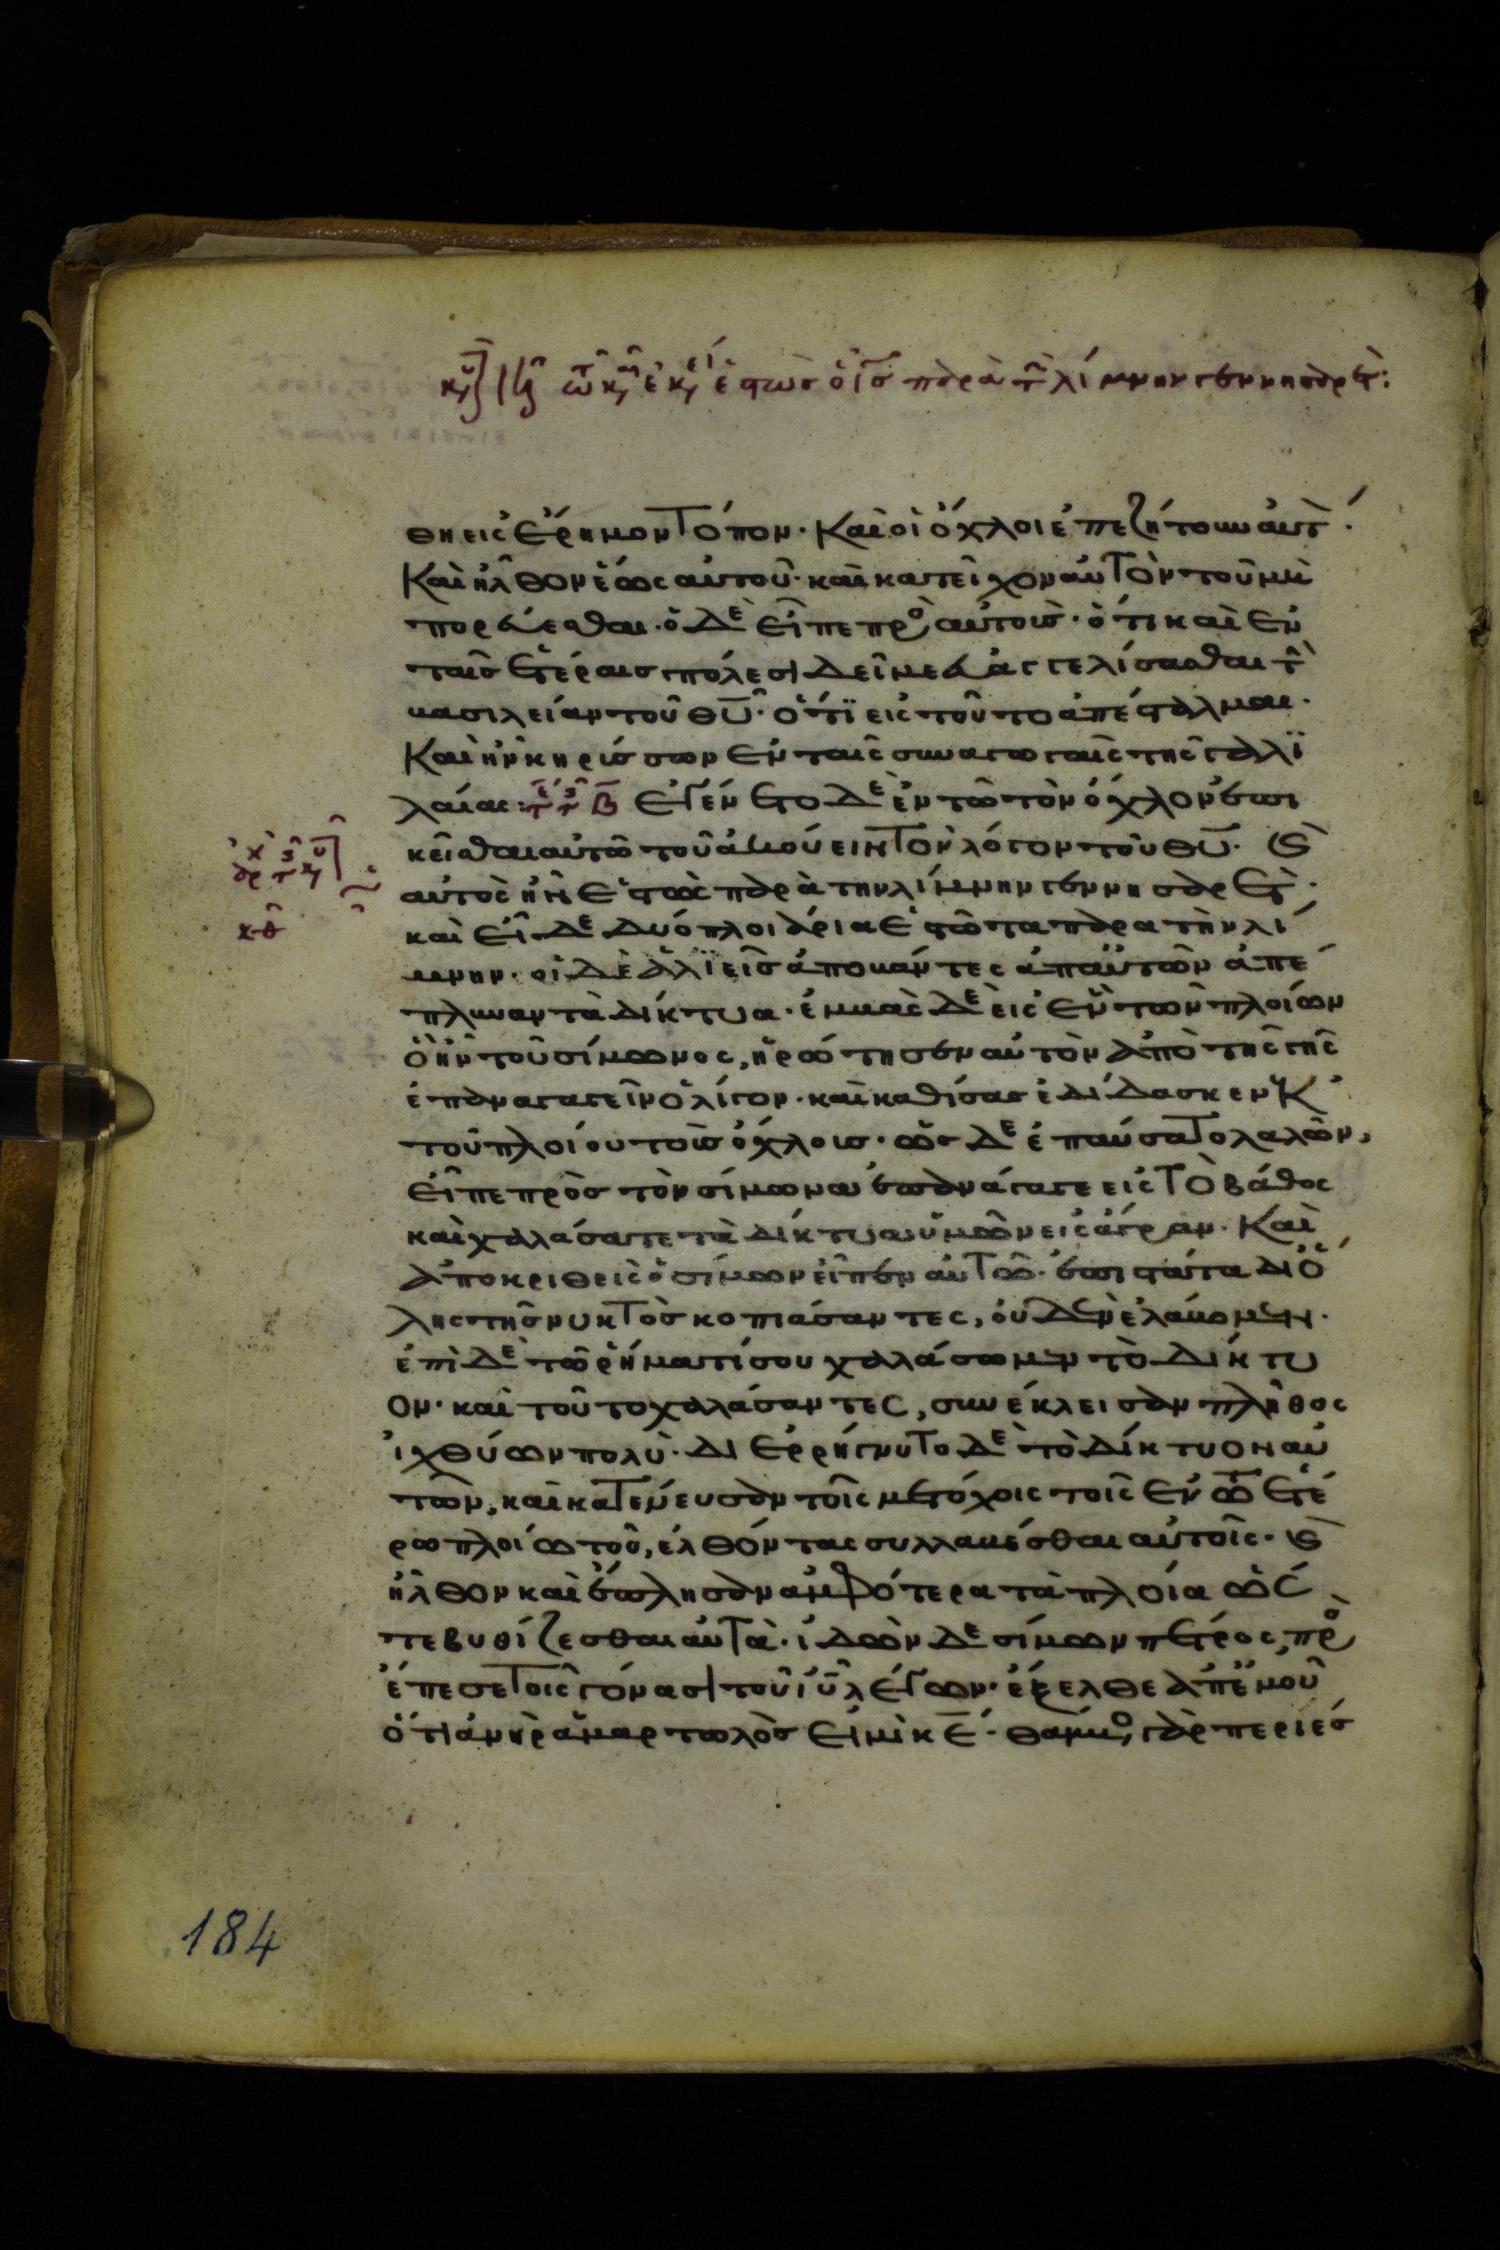 τῷ κ ἐκ ἐστὼς ὁ ἰς παρὰ τ λίμνην γεννησαρετ:
θη εἰς ἔρημον τόπον· καὶ οἱ ὄχλοι ἐπεζήτουν αὐτ·
Καὶ ἦλθον ἕως αὐτοῦ· καὶ κατεῖχον αὐτὸν τοῦ μὴ
πορεύεσθαι· ὁ δὲ εἶπε πρὸ αὐτοὺς· ὅτι καὶ ἐν
ταῖς ἑτέραις πόλεσι δεῖ με εὐαγγελίσασθαι τ
βασιλείαν τοῦ θῦ· ὅτι εἰς τοῦτο ἀπέσταλμαι·
Καὶ ἦν κηρύσσων ἐν ταῖς συναγωγαῖς τῆς γαλι
λαίας: β Ἐγένετο δὲ ἐν τῶ τὸν ὄχλον ἐπι
κεῖσθαι αὐτῶ τοῦ ἀκούειν τὸν λόγον τοῦ θῦ· Ϗ
αὐτὸς ἦν ἑστὼς παρὰ τὴν λίμνην γεννησαρετ·
καὶ εἶδε δύο πλοιάρια ἑστῶτα παρα τὴν λί
μνην· οἱ δὲ ἁλιεῖς ἀποβάντες ἀπ αὐτῶν ἀπέ
πλυναν τὰ δίκτυα· ἐμβὰς δὲ εἰς ἓν τῶν πλοίων
ὃ ἦν τοῦ σίμωνος, ἠρώτησεν αὐτὸν ἀπὸ τῆς γῆς
ἐπαναγαγεῖν ὀλίγον· καὶ καθίσας ἐδίδασκεν ἐκ
τοῦ πλοίου τοὺς ὄχλους· ὡς δὲ ἐπαύσατο λαλῶν,
εἶπε πρὸς τὸν σίμωνα ἐπανάγαγε εἰς τὸ βάθος
καὶ χαλάσατε τὰ δίκτυα ὑμῶν εἰς ἄγραν· Καὶ
ἀποκριθεὶς ὁ σίμων εἶπεν αὐτῶ· ἐπιστάτα δι ὅ
λης τῆς νυκτὸς κοπιάσαντες, οὐδὲν ἐλάβομεν·
ἐπὶ δὲ τῶ ῥήματί σου χαλάσωμεν τὸ δίκτυ
ον· καὶ τοῦτο χαλάσαντες, συνέκλεισαν πλῆθος
ἰχθύων πολὺ· διερρήγνυτο δὲ τὸ δίκτυον αὐ
τῶν, καὶ κατένευσαν τοῖς μετόχοις τοῖς ἐν τῶ ἑτέ
ρω πλοίω τοῦ, ἐλθόντας συλλαβέσθαι αὐτοῖς· Ϗ
ἦλθον καὶ ἔπλησαν ἀμφότερα τὰ πλοία ὥσ
τε βυθίζεσθαι αὐτὰ· ἰδὼν δὲ σίμων πέτρος, πρὸ
έπεσε τοῖς γόνασι τοῦ ἰῦ λέγων· ἔξελθε ἀπ ἐμοῦ
ὅτι ἀνὴρ ἁμαρτωλὸς εἰμὶ κε· θάμβο γὰρ περιέσ
184